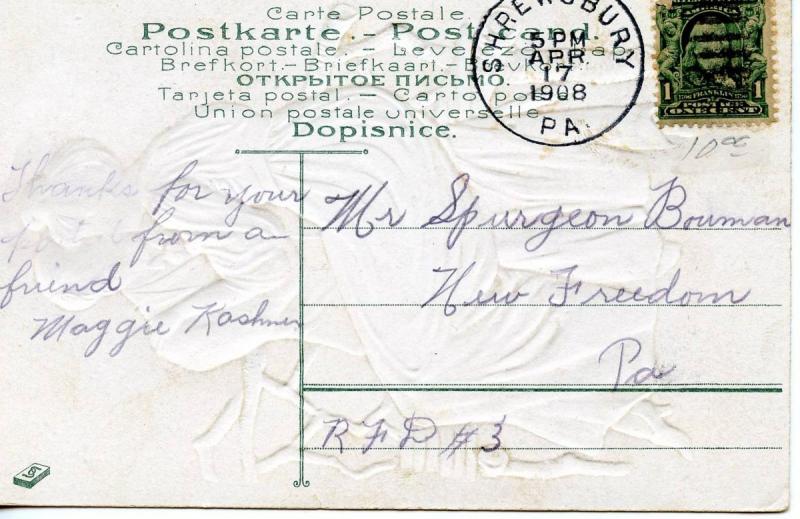 Carte Postale.
Postkarte. - Post Card.
Cartolina postale. - Levelező-Lap.
Brefkort. - Briefkaart. - Brevkort.
ОТКРЫТОЕ ПИСЬМО.
Tarjeta postal. - Carto postal.
Union postale universelle.
Dopisnice.
SHREWSBURY
5 PM
APR
17
1908
PA.
1 FRANKLIN 1
POSTAGE
ONE CENT
10 00
Thanks for your
postal from a
friend
Maggie Kashner
Mr Spurgeon Bowman
New Freedom
Pa
R F D #3